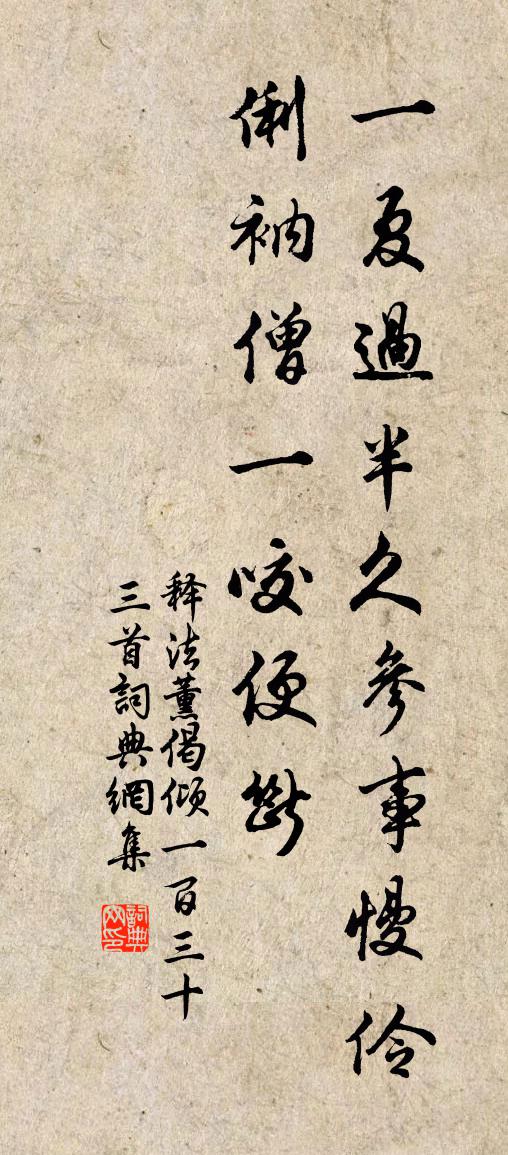 一夏過半久參事慢伶
俐衲僧一咬便斷
释法薰偈倾一百三十
三首詞典網集
詞典網印